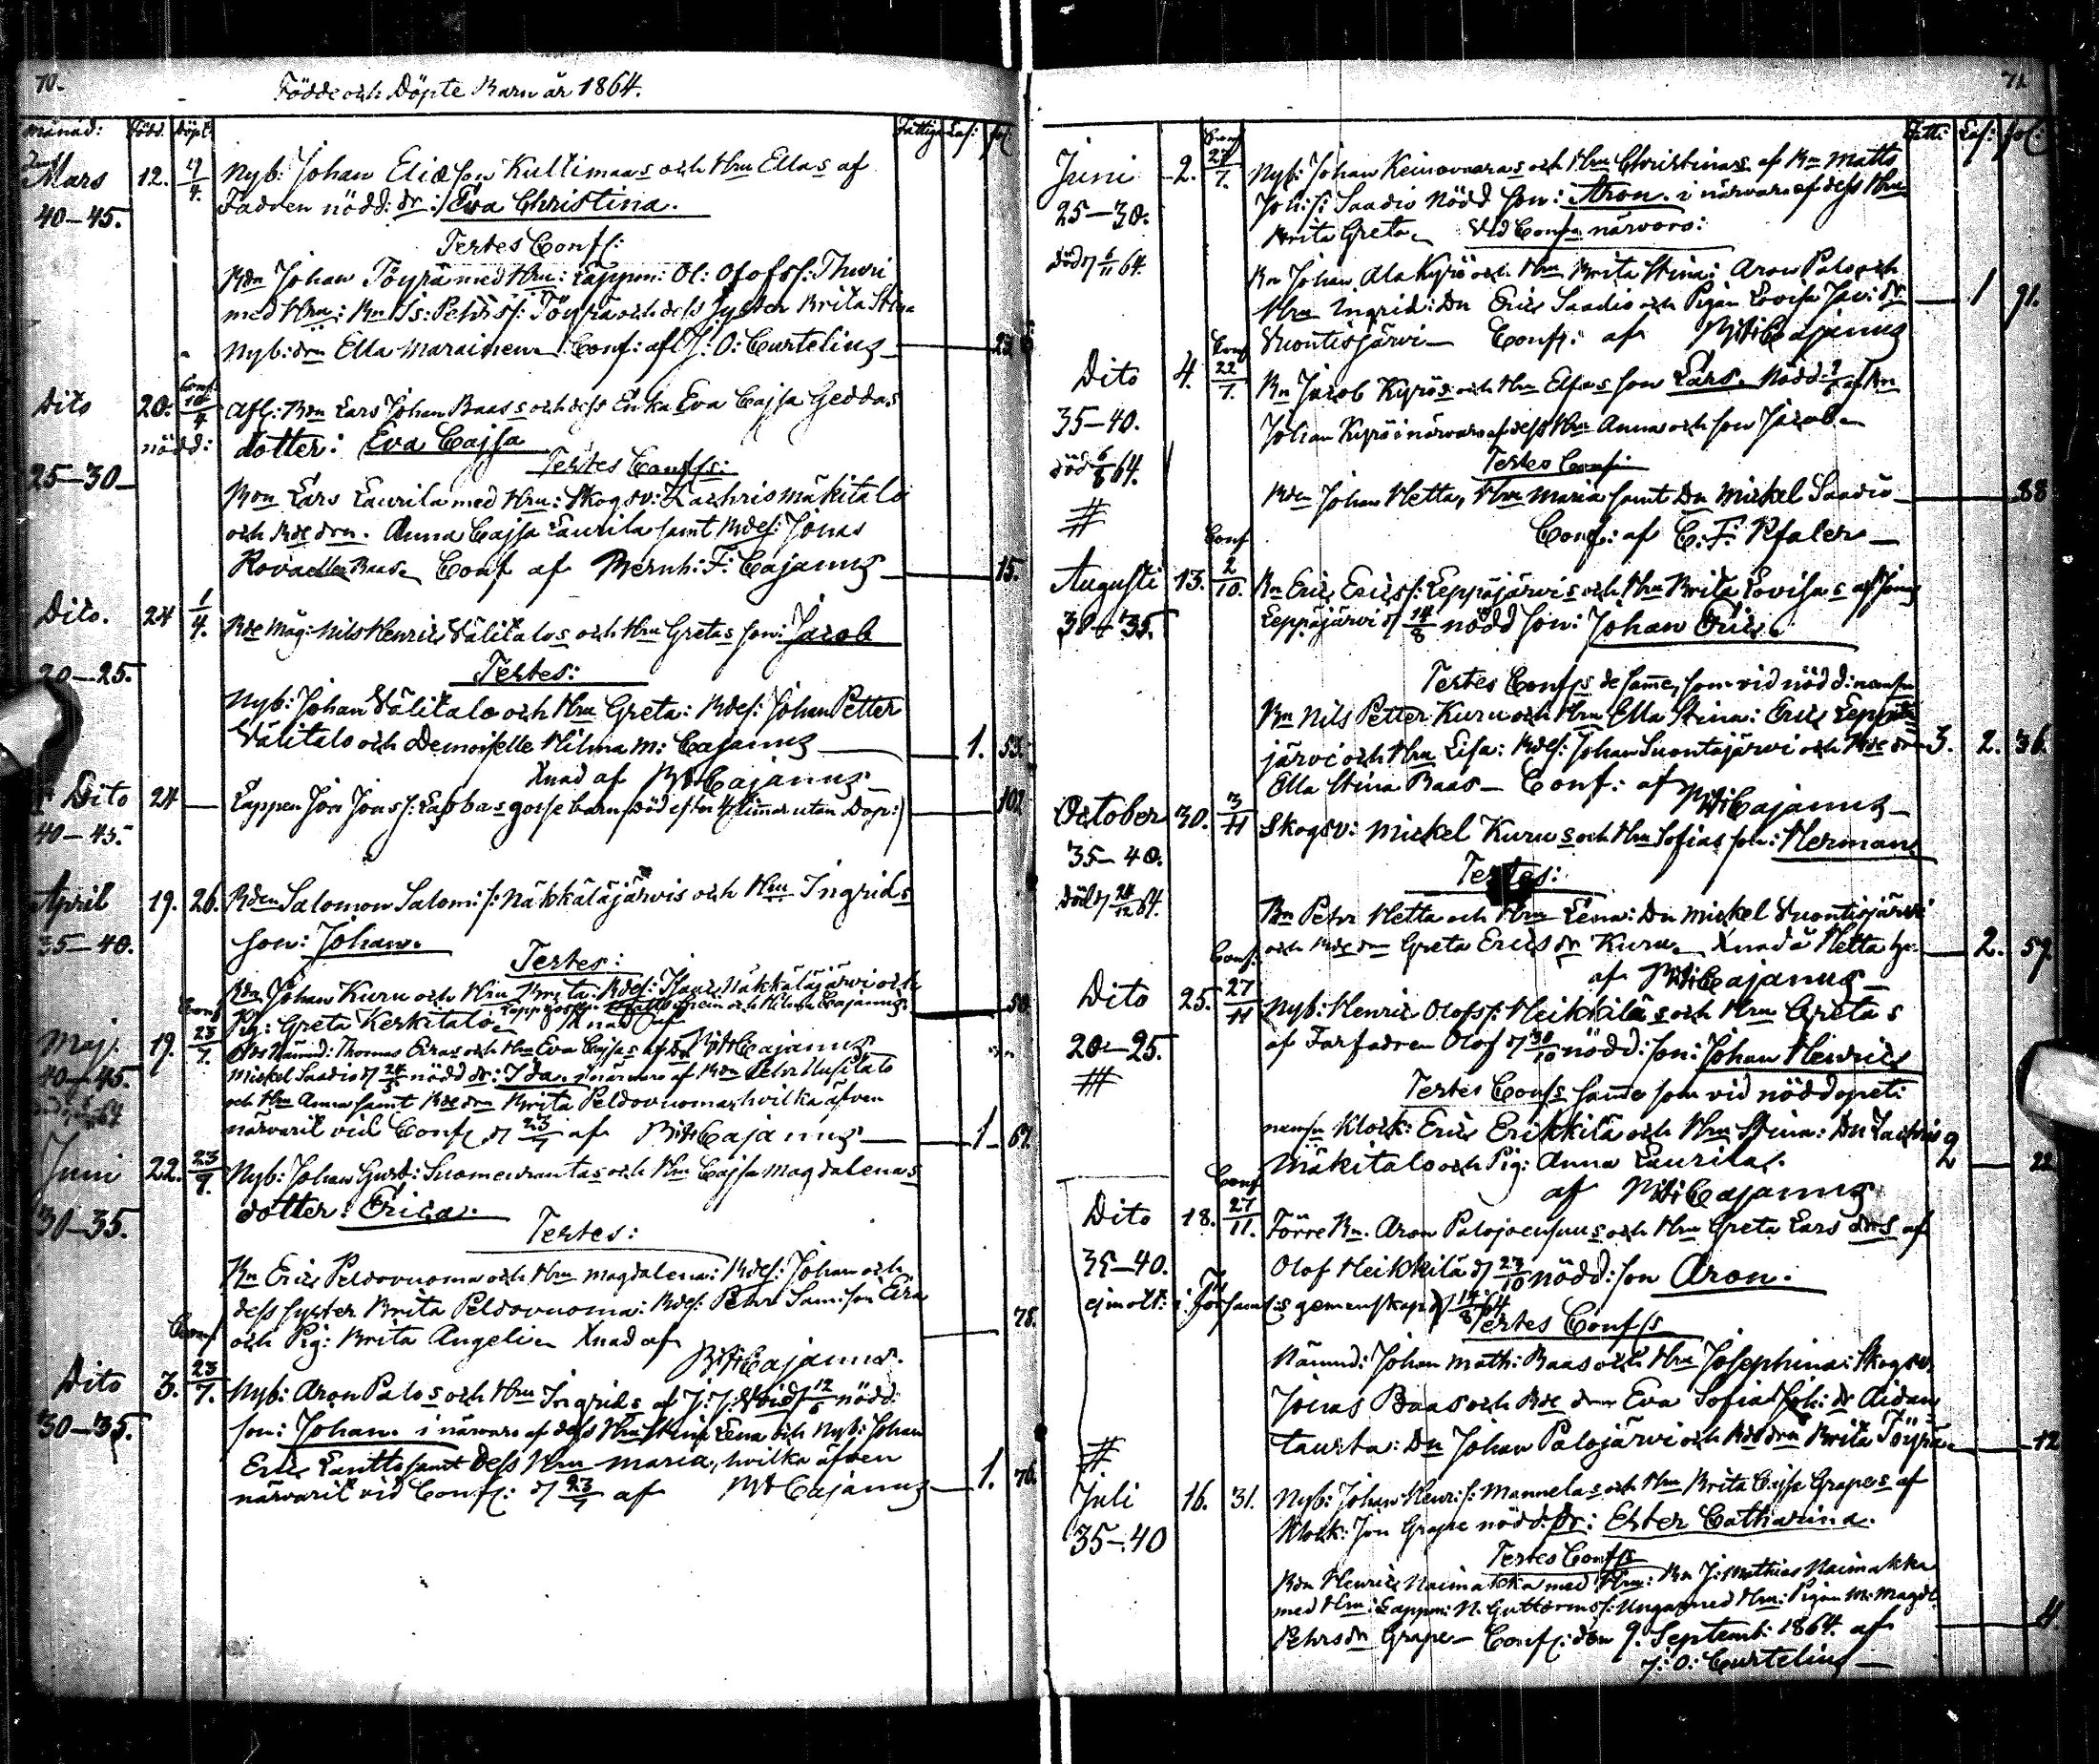 70.
Födde och Döpte Barn år 1864.
månad: Född. Döpt. Fattiga Las: fol:
Mars 12. Nyb: Johan Eliæson Kultimaas och Hru Ellas af
40–45. Fadren nödd: dr: Eva Christina.
Testes Conf:
Bdn Johan Töyrä med Hru: Lappm: Ol: Olofss: Thuri
med Hru: Bn Is: Pehrss: Töyrä och dess syster Brita Stina
Nyb: drn Ella Marainen. Conf: af J: O: Curtelius
Dito 20. Conf 10/4 Afl: Bdn Lars Johan Baas s och dess Enka Eva Cajsa Geddas
nödd: dotter: Eva Cajsa
25–30 Testes Confs:
Bdn Lars Laurila med Hru: Skogsv: Zachris Mäkitalo
och Bde drn. Anna Cajsa Laurila samt Bdes: Jonas
Rova eller Baas. Conf af Bernh: F: Cajanus 15.
Dito. 24 1/4. Bde Måg: Nils Henric Välitalos och Hru Gretas son: Jacob
20–25. Testes:
Nyb: Johan Välitalo och Hru Greta: Bdes: Johan Petter
Välitalo och Demoiselle Hilma M: Cajanus 1. 53.
Xnad af BHCajanus
Dito 24 Lappen Jon Jonss: Labbas gosse barn död efter 4 timmar utan Dop:) 102
40–45.
April 19. 26. Bden Salomon Salom: s: Näkkäläjärvis och Hru Ingrids
35–40. son: Johan.
Testes:
Bdn Johan Kuru och Hru Greta: Bdes: Isaac Näkkäläjärvi och
Pig: Greta Kerkitalo. Xnad af
BHCajanus
Maj. 19. Conf 23/7. Nämnd: Thomas Eiras och Hru Eva Cajsas af Dn
40–45. Mickel Saadio d 24/5 nödd dr: Ida. i närvaro af Bdn Pehr Husitalo
och Hru Anna samt Bde drn Brita Peldovuoma, hvilka äfven
närvarit vid Conf d 23/7 af BHCajanus 1 67.
Juni 22. 23/7. Nyb: Johan Gust: Suomenrantas och Hru Cajsa Magdalenas
30–35. dotter: Erica.
Testes:
Bn Eric Peldovuoma och Hru Magdalena: Bdes: Johan och
dess syster Brita Peldovuoma: Bdes: Pehr Sam: son Eira
och Pig: Brita Angeli Xnad af 78.
BHCajanus.
Dito 3. Conf 23/7. Nyb: Aron Palos och Hru Ingrids af nödd:
30–35. son: Johan. i närvaro af dess Hru Stina Lena och Nyb: Johan
Eric Lantto samt Dess Hru Maria, hvilka äfven
närvarit vid Conf: d 23/7 af BHCajanus 1. 76.
71
Fatti: Las: fol:
Juni 2. Conf 27/7. Nyb: Johan Keinovaaras och Hru Christinas af Bn Matts
25–30. Joh: s: Saadio Nödd son: Aron. i närvaro af dess Hru
Brita Greta. Vid Conf närvoro:
död d 6/11 64. Bn Johan Alakyrö och Hru Brita Stina: Aron Palo och
Hru Ingrid: Dn Eric Saadio och Pigan Lovisa Jac: dr 1 91.
Vuontisjärvi Conf: af BHCajanus
Dito 4. Conf 22/7. Bn Jacob Kyrös och Hru Elsas son Lars. Nödd af Bn
35–40. Johan Kyrö i närvaro af dess Hru Anna och son Jacob
död 6/8 64. Testes Conf:
Bdn Johan Hetta, Hru Maria samt Dn Mickel Saadio 88
# Conf: af C: F: Pfaler
Augusti 13. Conf 2/10. Bn Eric Ericss: Leppäjärvis och Hru Brita Lovisas af Jonas
30–35. Leppäjärvi d 14/8 nödd son: Johan Eric.
Testes Confs de samme, som vid nödd: nemln
Bn Nils Petter Kuru och Hru Ella Stina: Eric Leppä
järvi och Hru Lisa: Bdes: Johan Suontajärvi och Bde dr 3. 2. 36.
Ella Stina Baas Conf: af BHCajanus
October 30. 3/11 Skogsv: Mickel Kurus och Hru Sofias son: Herman
35–40. Testes:
död d 24/12 64. Bn Pehr Hetta och Hru Lena: Dn Mickel Vuontisjärvi
och Bde drn Greta Erics dr Kuru. Xnad å Hetta 2. 59.
af BHCajanus
Dito 25. Conf: 27/11 Nyb: Henric Olofss: Heikkiläs och Hru Gretas
20–25. af Farfadren Olof d 30/10 nödd: son: Johan Henric
# Testes Confs samme som vid nöddopet:
nemln Klock: Eric Erikkilä och Hru Stina: Dn Zachris
Mäkitalo och Pig: Anna Laurila. 2 22
af BHCajanus
Dito 18. Conf 27/11. Förre Bn. Aron Palojoensuus och Hru Greta Lars drs af
35–40. Olof Heikkilä d 23/10 nödd: son Aron.
Testes Confs
Nämnd: Johan Math: Baas och Hru Josephina: Skogsv:
Jonas Baas och Bde drn Eva Sofia Joh: dr Aidan
tausta: Dn Johan Palojärvi och Bde drn Brita Töyrä 12
#
Juli 16. 31. Nyb: Johan Henr: s: Mannelas och Hru Brita Cajsa Grapes af
35–40 Klock: Jon Grape nödd: dr: Ester Catharina.
Testes Confs
Bdn Henric Naimakka med Hru: Bn J: Mathias Naimakka
med Hru: Lappm: N. Guttormss: Unga med Hru: Pigan M: Magd:
Pehrsdr Grape Conf: den 9. Septemb: 1864. af 4.
J: O: Curtelius